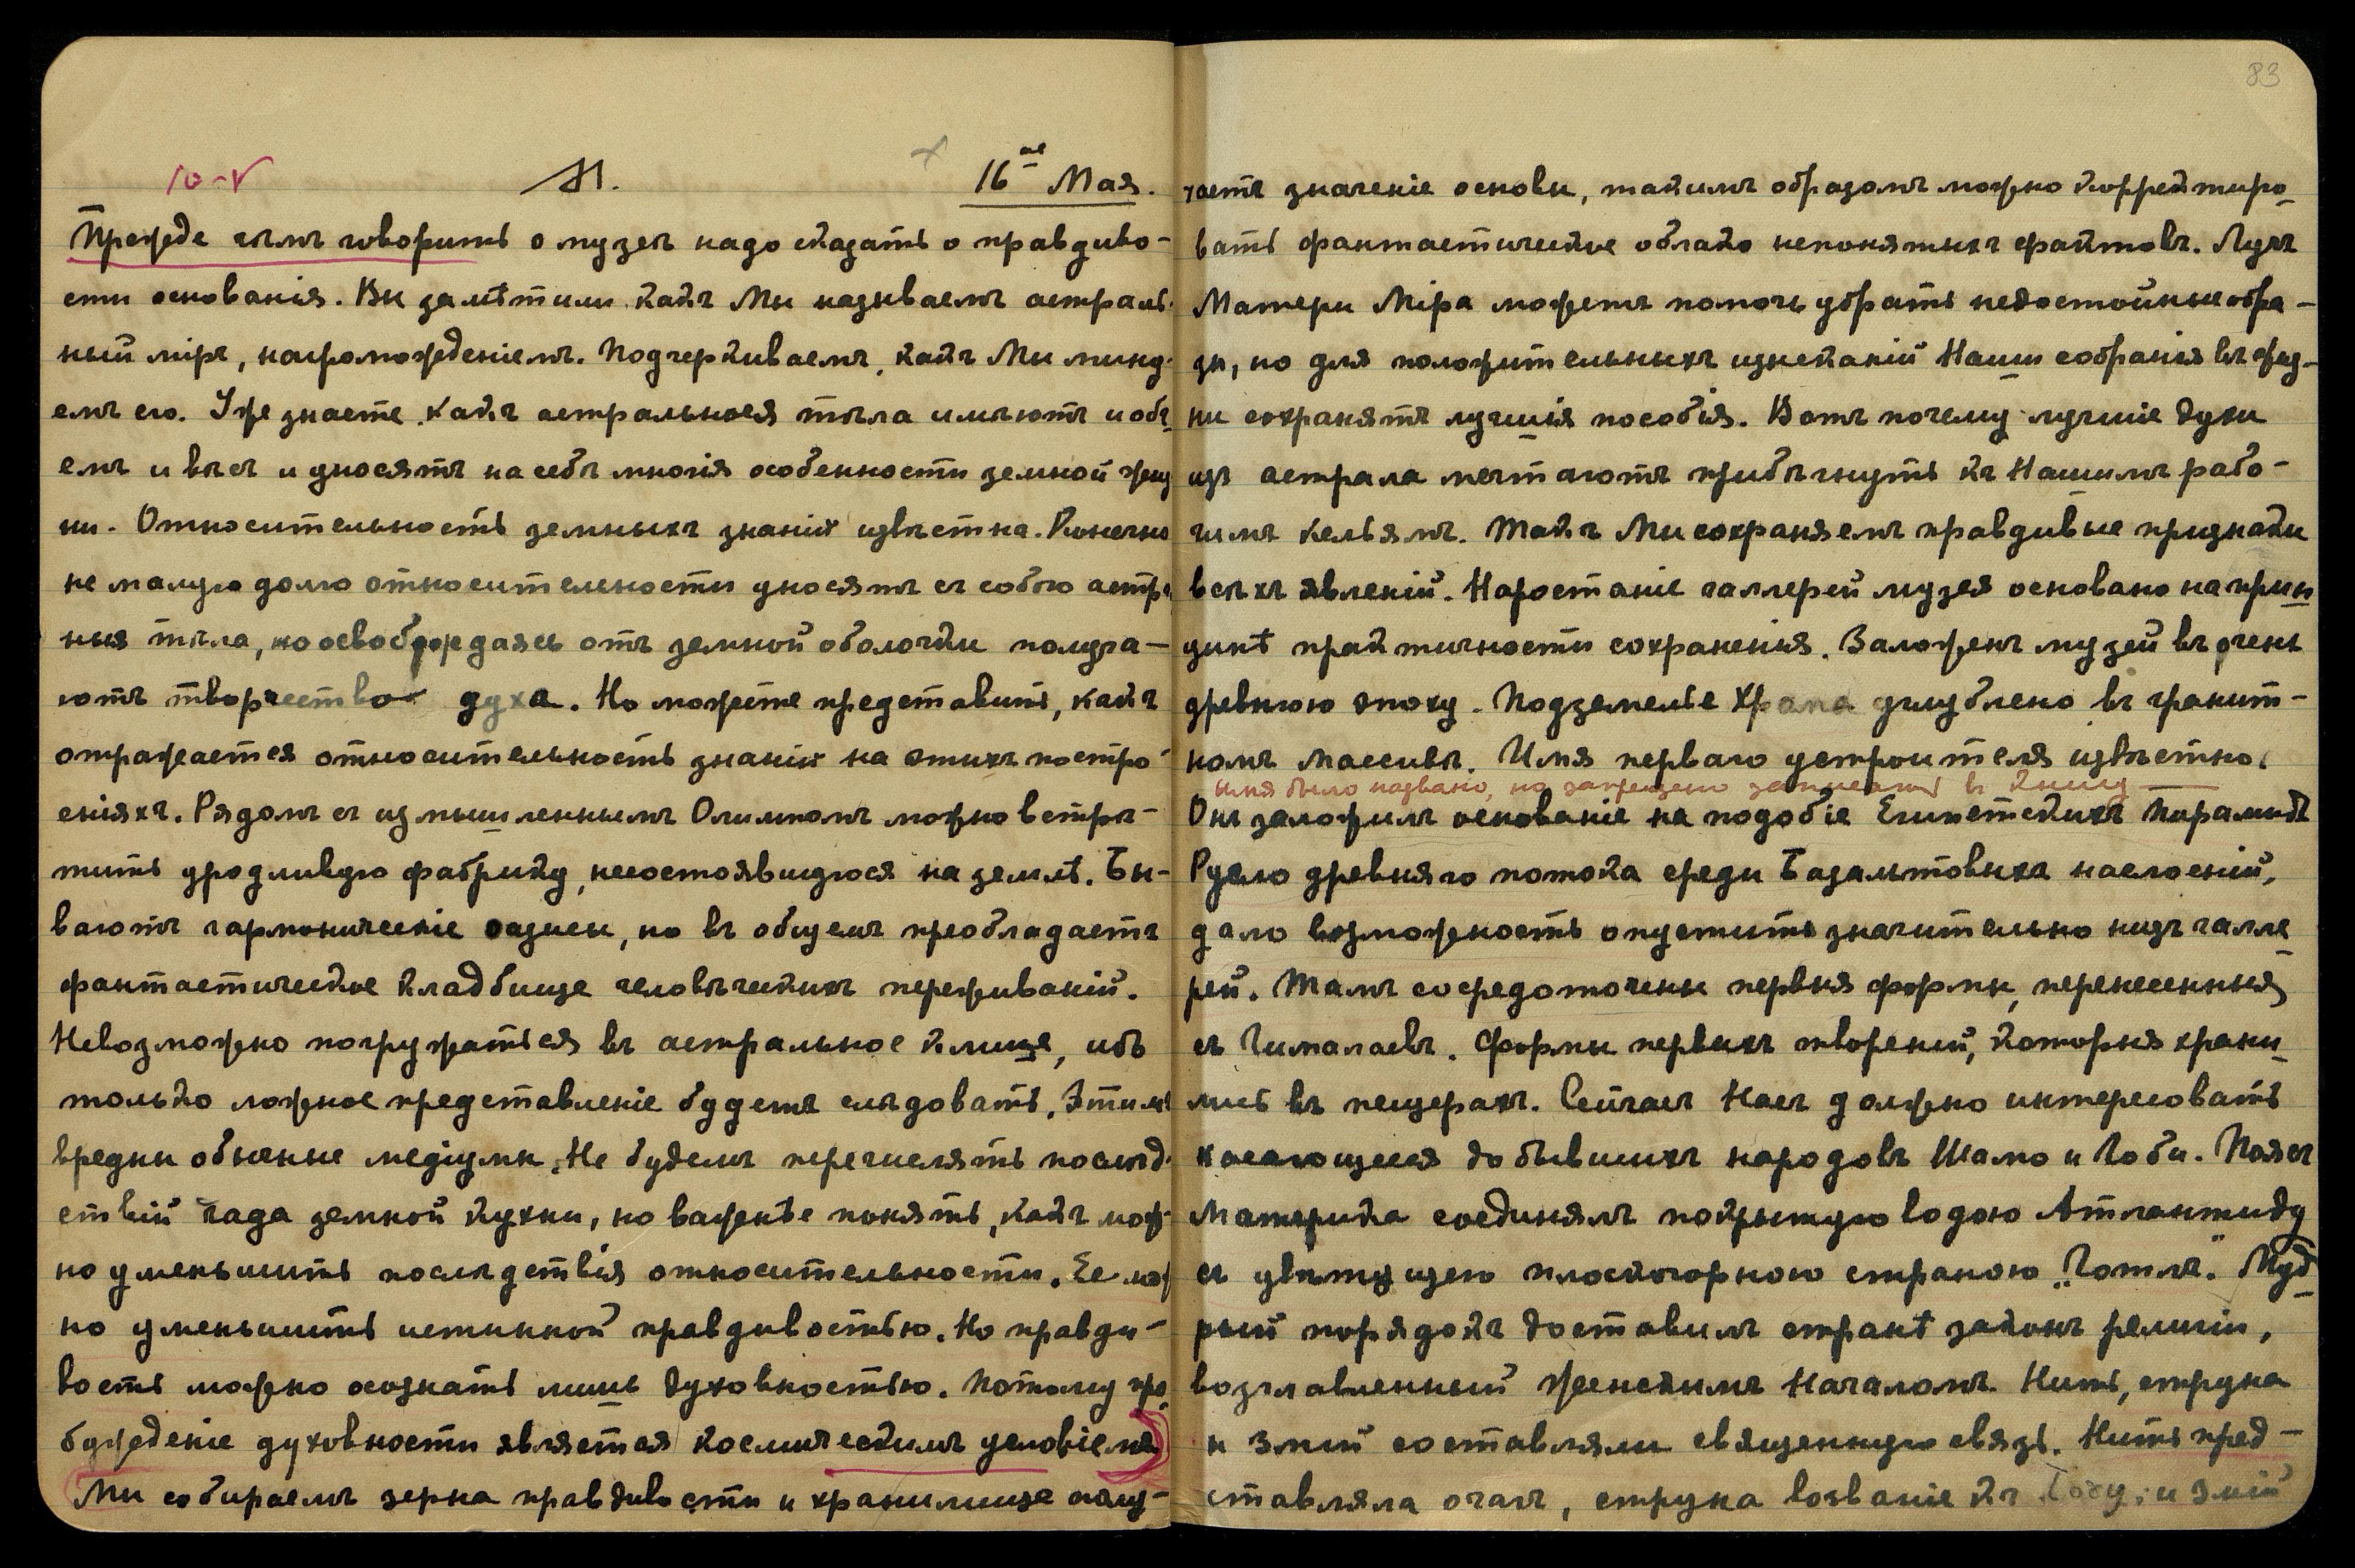 83
10-V М. 16ое Мая.
Прежде чѣмъ говорить о музеѣ надо сказать о правдиво-
сти основанія. Вы замѣтили какъ Мы называемъ астраль-
ный міръ, нагроможденіемъ. Подчеркиваемъ, какъ Мы мину-
емъ его. Уже знаете, какъ астральныя тѣла имѣютъ и объ-
емъ и вѣсъ и уносятъ на себѣ многія особенности земной жиз
ни. Относительность земныхъ знаній извѣстна. Конечно
не малую долю относительности уносятъ съ собою астр
ныя тѣла, но освобождаясь отъ земной оболочки получа-
ютъ творчество духа. Но можете представить, какъ
отражается относительность знаній на этихъ постро-
еніяхъ. Рядомъ съ измышленнымъ Олимпомъ можно встрѣ-
тить уродливую фабрику, несостоявшуюся на землѣ. Бы-
ваютъ гармоническіе оазисы, но въ общемъ преобладаетъ
фантастическое кладбище человѣческихъ переживаній.
Невозможно погружаться въ астральное клише, ибо
только ложное представленіе будетъ слѣдовать. Этимъ
вредны обычные медіумы. Не будемъ перечислять послѣд-
ствій чада земной кухни, но важнѣе понять, какъ мож-
но уменьшить послѣдствія относительности. Ее мож
но уменьшить истинной правдивостью. Но правди-
вость можно осознать лишь духовностью. Потому про
бужденіе духовности является космическимъ условіемъ
Мы собираемъ зерна правдивости и хранилище полу-
чаетъ значеніе основы, такимъ образомъ можно корректиро-
вать фантастическое облако непонятыхъ фактовъ. Лучъ
Матери Міра можетъ помочь убрать недостойные обра-
зы, но для положительныхъ изысканій Наши собранія въ жиз-
ни сохранятъ лучшія пособія. Вотъ почему лучшіе духи
изъ астрала мечтаютъ прибѣгнуть къ Нашимъ рабо-
чимъ кельямъ. Такъ Мы сохраняемъ правдивые признаки
всѣхъ явленій. Наростаніе галлерей музея основано на прин
ципѣ практичности сохраненія. Заложенъ музей въ очень
древнюю эпоху. Подземелье Храма углублено въ гранит-
номъ массивѣ. Имя перваго устроителя извѣстно.
имя было названо, но запрещено записать въ книгу
Онъ заложилъ основаніе на подобіе Египетскихъ Пирамидъ
Русло древняго потока среди Базальтовыхъ наслоеній,
дало возможность опустить значительно низъ галле
рей. Тамъ сосредоточены первыя формы, перенесенныя
съ Гималаевъ. Формы первыхъ твореній, которыя храни
лись въ пещерахъ. Сейчасъ Насъ должно интересовать
касающееся до бывшихъ народовъ Шамо и Гоби. Поясъ
Материка соединялъ покрытую водою Атлантиду
съ цвѣтущею плоскогорною страною „Готль". Муд
рый порядокъ доставилъ странѣ законъ религіи,
возглавленный Женскимъ Началомъ. Нить, струна
и Змій составляли священную связь. Нить пред-
ставляла очагъ, струна воззваніе къ Богу, и Змій